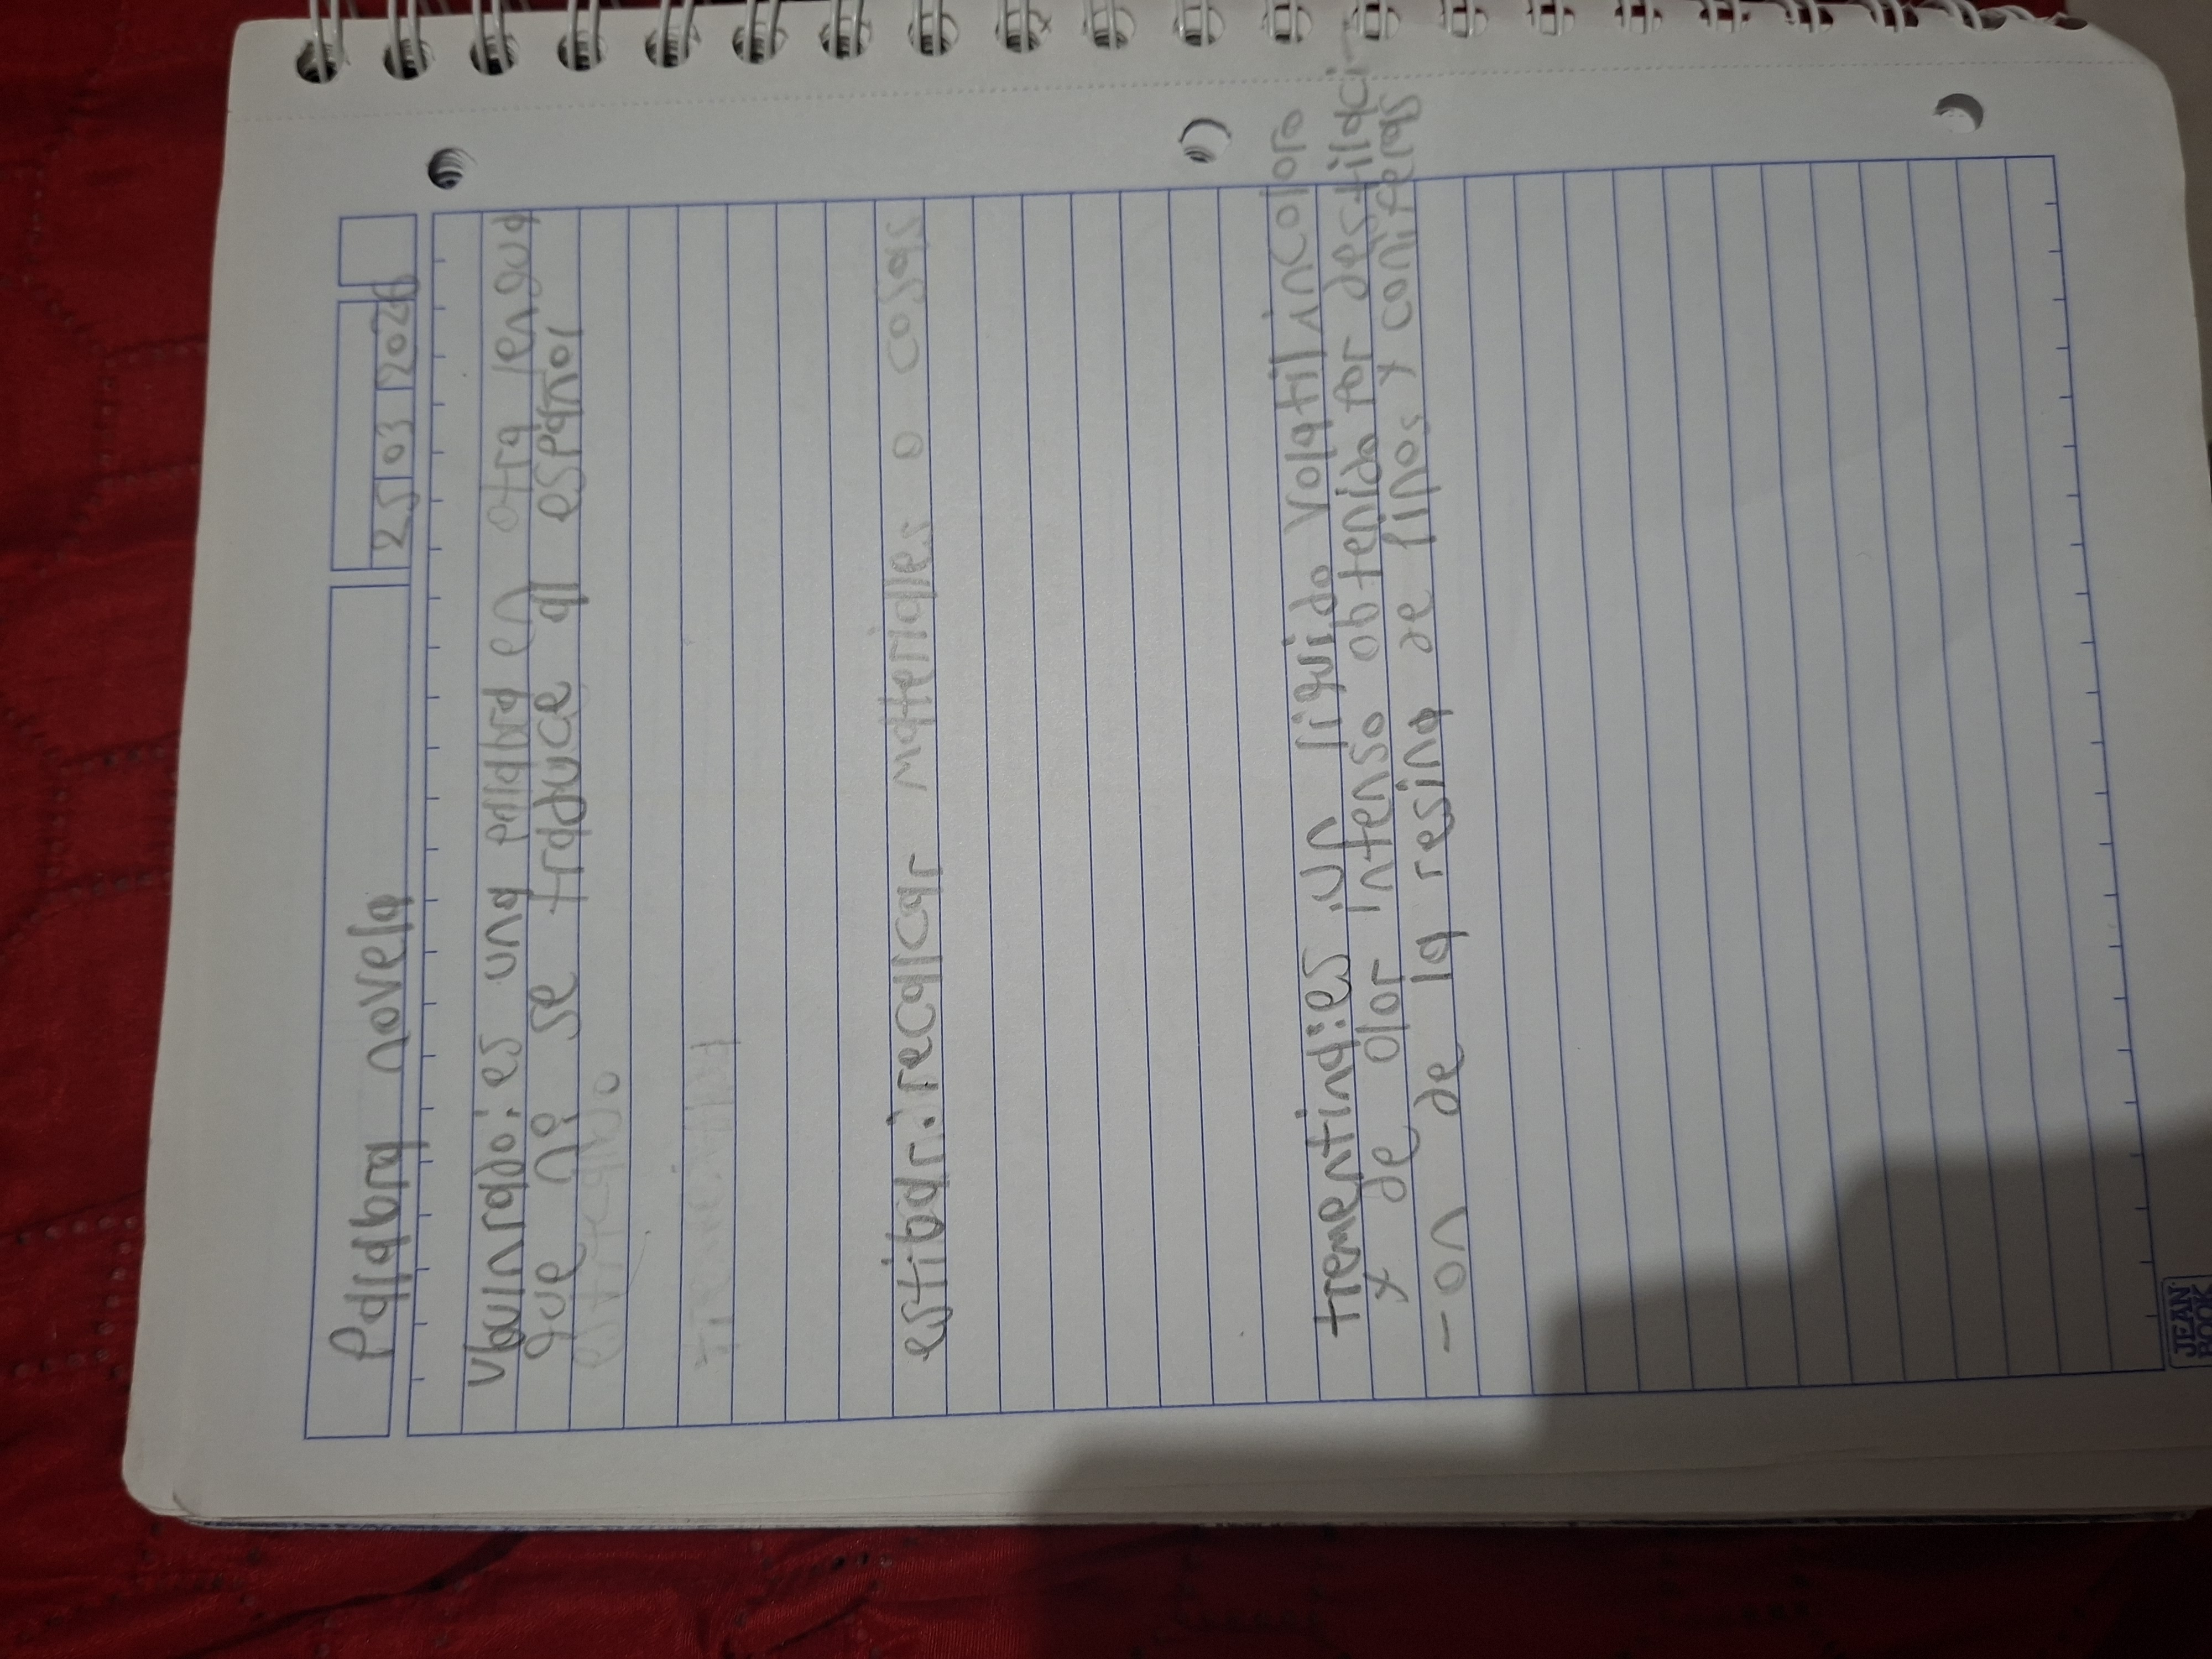 Palabra novela
25 03 2026
Vbulnrado: es una palabra en otra lengua
que no se traduce al español
estibar: recalcar materiales o cosas
trementina: es un liquido volatil incoloro
y de olor intenso obtenido por destilaci-
-on de la resina de pinos y coniferas
JEAN
BOOK